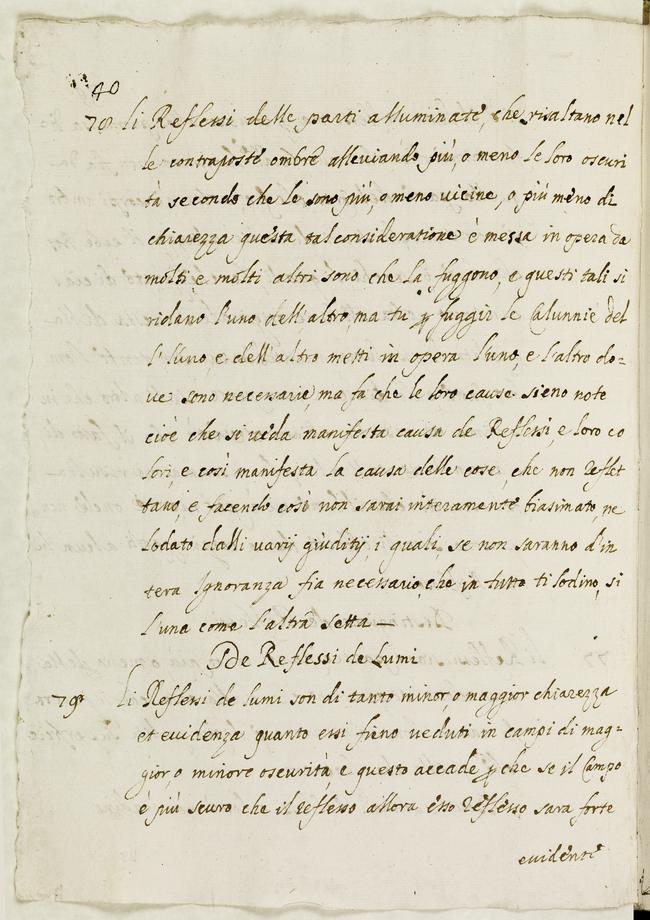 40
78 li Reflessi delle parti alluminate, che risaltano nel
le contraposte ombre alleviando più, o meno le loro oscuri
tà secondo che le sono più, o meno vicine, o più meno di
chiarezza questa tal consideratione è messa in opera da
molti, e molti altri sono che la fuggono, e questi tali si
ridano l'uno dell'altro, ma tu p fuggir le Calunnie del
l'uno, e dell'altro metti in opera l'uno, e l'altro do=
ve sono necessarie, ma fa che le loro cause sieno note
cioè che si veda manifesta causa de Reflessi, e loro co
lori, e così manifesta la causa delle cose, che non reflet
tano, e facendo così non sarai interamente biasimato, ne
lodato dalli varij giuditij, i quali se non saranno d'in
tera Ignoranza fia necessario, che in tutto ti lodino, si
l'una come l'altra setta —
De Reflessi de Lumi
79 li Reflessi de lumi son di tanto minor, o maggior chiarezza
et evidenza quanto essi fieno veduti in campi di mag=
gior, o minore oscurità, e questo accade p che se il Campo
è più scuro che il reflesso allora esso reflesso sara forte
evidente